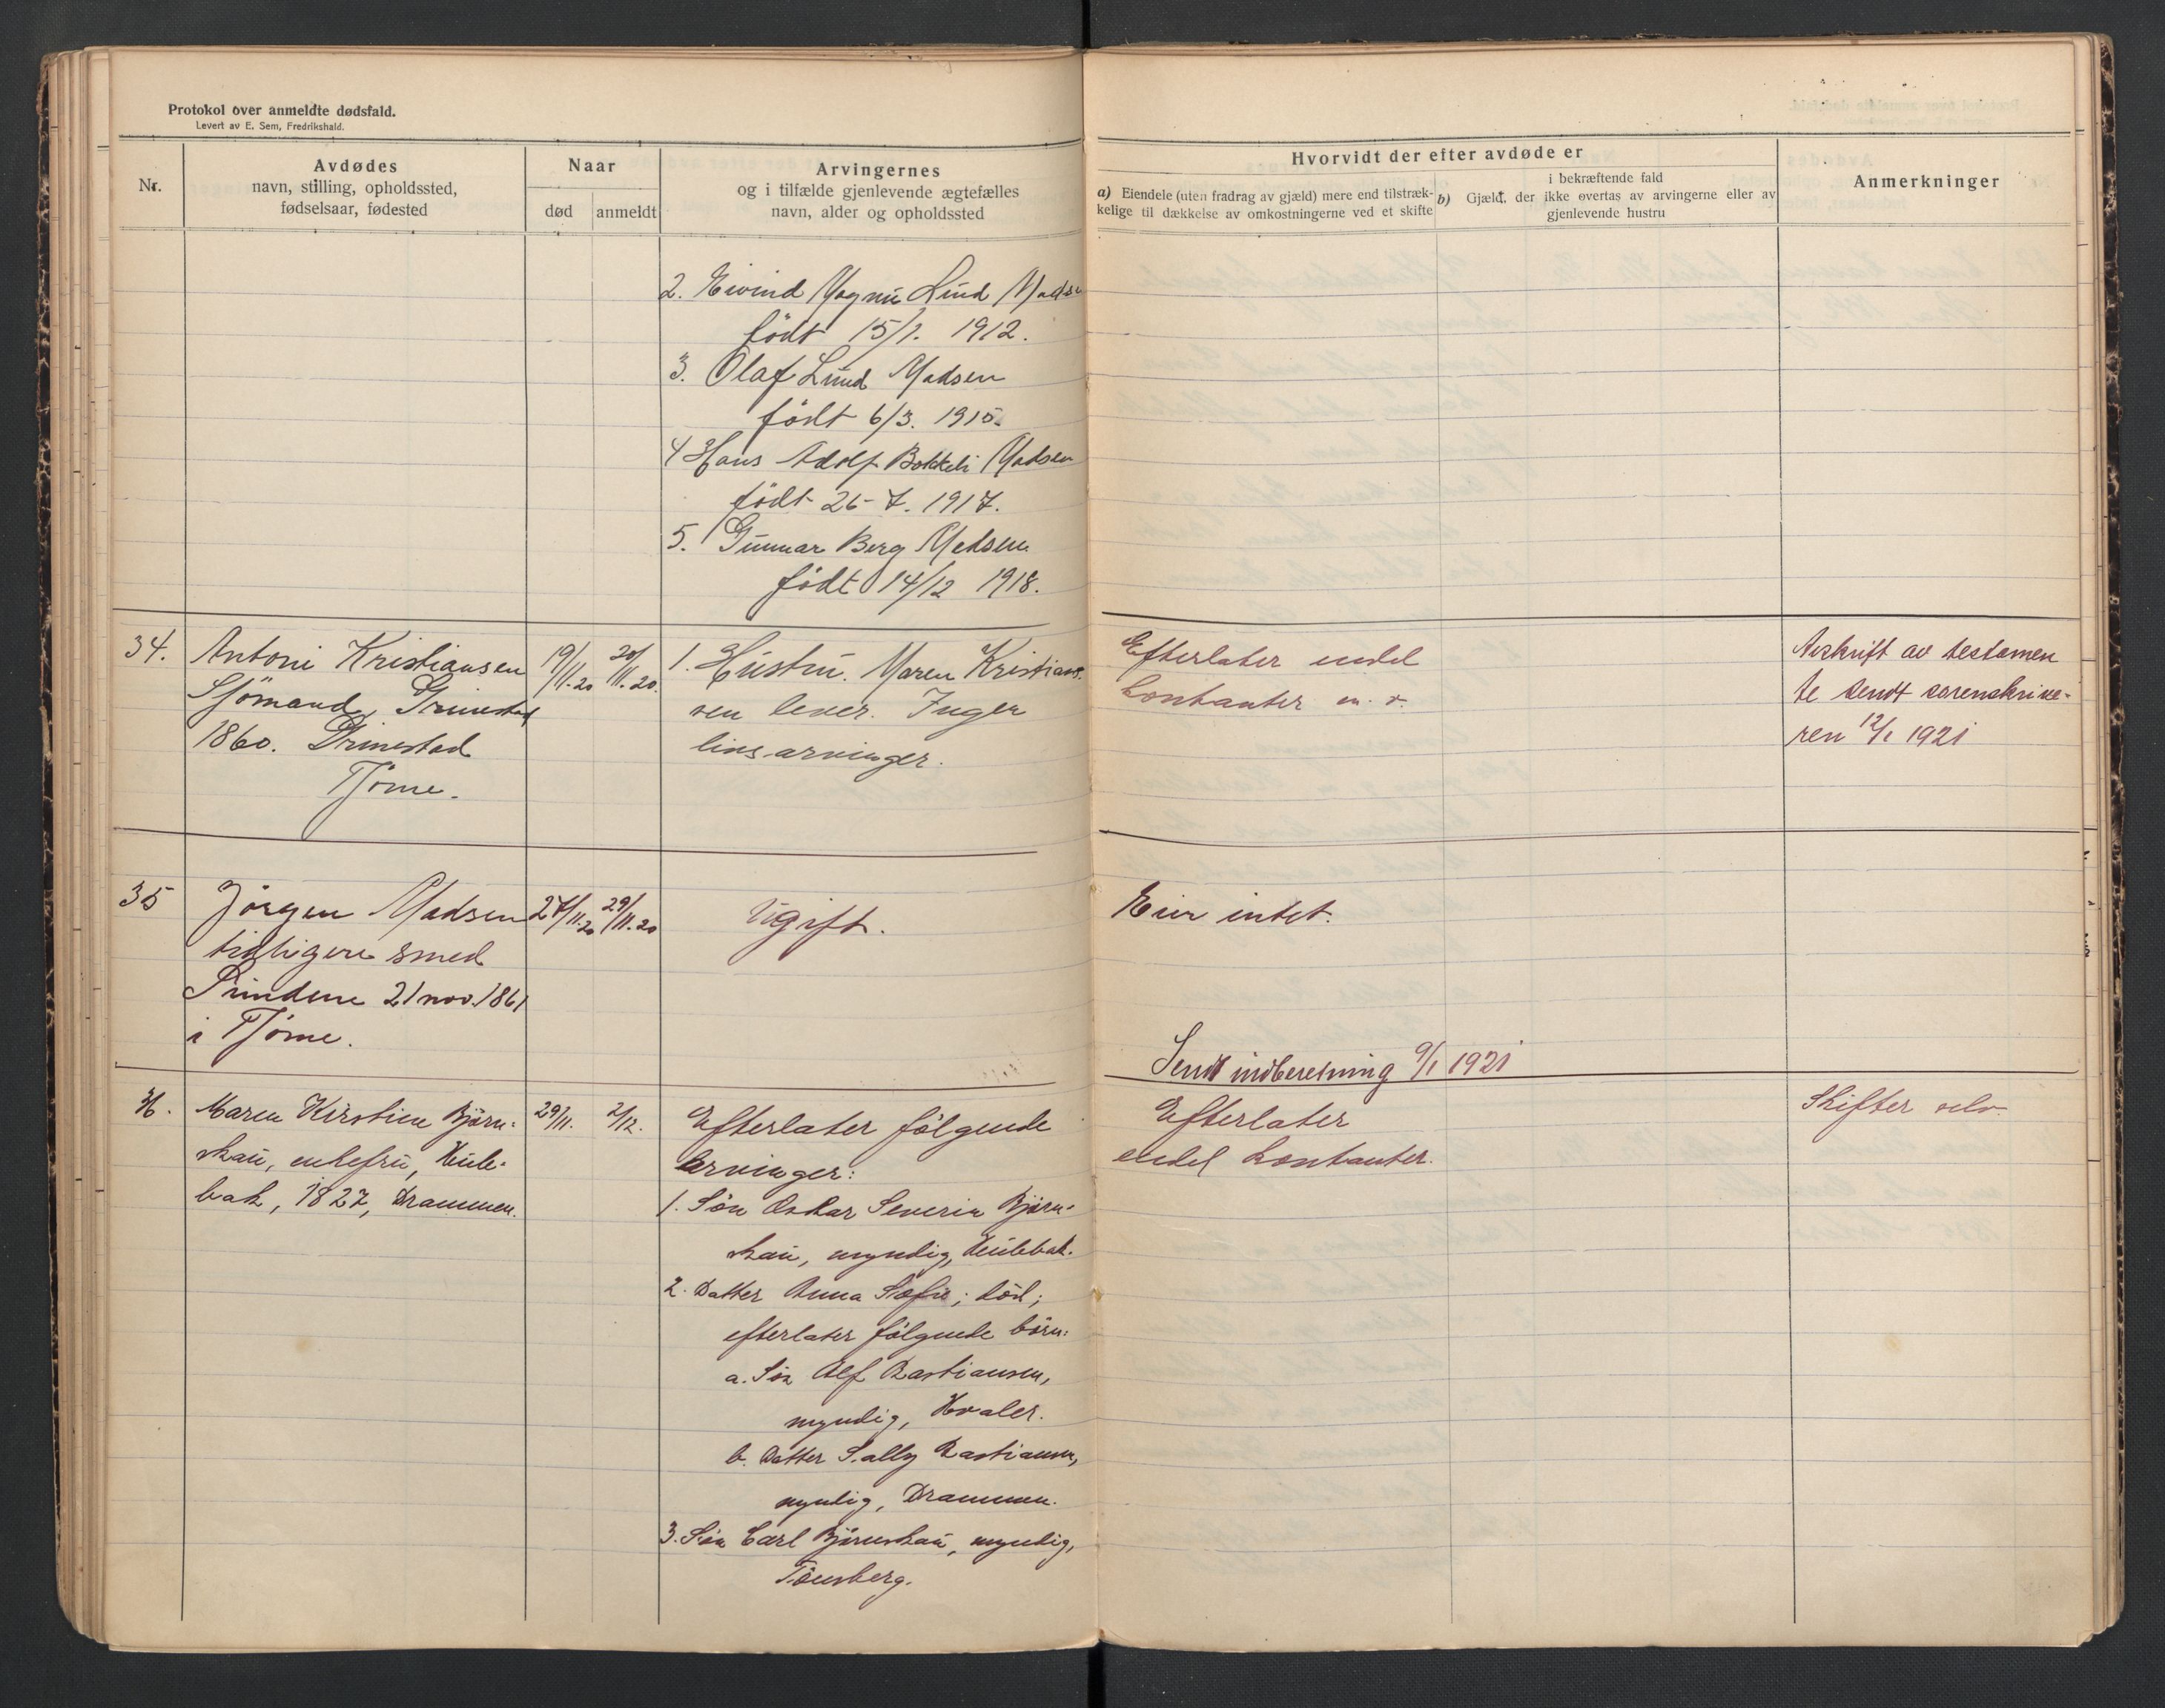 Protokol over anmeldte dødsfald.
Levert av E. Sem, Fredrikshald.
Nr.
Avdødes
navn, stilling, opholdssted,
fødselsaar, fødested
Naar
død
anmeldt
Arvingernes
og i tilfælde gjenlevende ægtefælles
navn, alder og opholdssted
Hvorvidt der efter avdøde er
a) Eiendele (uten fradrag av gjæld) mere end tilstræk-
kelige til dækkelse av omkostningerne ved et skifte
i bekræftende fald
b) Gjæld, der ikke overtas av arvingerne eller av
gjenlevende hustru
Anmerkninger
2. Eivind Magnu Lund Madse
født 15/1. 1912.
3. Olaf Lund Madsen
født 6/3. 1915.
4 Hans Adolf Madsen
født 26-7. 1917.
5. Gunnar Berg Madsen
født 14/12 1918.
34.
Antoni Kristiansen
Sjømand, Grimestad
1860. Grimestad
Tjøme.
19/11.20
20/11.20.
1. Hustru. Maren Kristian-
sen lever. Ingen
livsarvinger.
Efterlater endel
kontanter m. v.
Avskrift av testamen
te sendt sorenskrive-
ren 12/1 1921
35
Jørgen Madsen
tidligere smed
Sundene 21 nov. 1861
i Tjøme.
27/11.20
29/11.20
Ugift.
Eier intet.
Sendt indberetning 9/1 1921
36.
Maren Kirstine Bjørn-
skau, enkefru, Hule-
bak, 1827, Drammen.
29/11.
2/12.
Efterlater følgende
arvinger:
1. Søn Oskar Severin Bjørn-
skau, myndig, Hulebak.
2. Datter Anna Sofie; død;
efterlater følgende børn:
a. Søn Alf Bastiansen,
myndig, Hvaler.
b. Datter Sally Bastiansen,
myndig, Drammen.
3. Søn Carl Bjørnskau, myndig,
Tønsberg.
Efterlater
endel kontanter.
Skifter selv